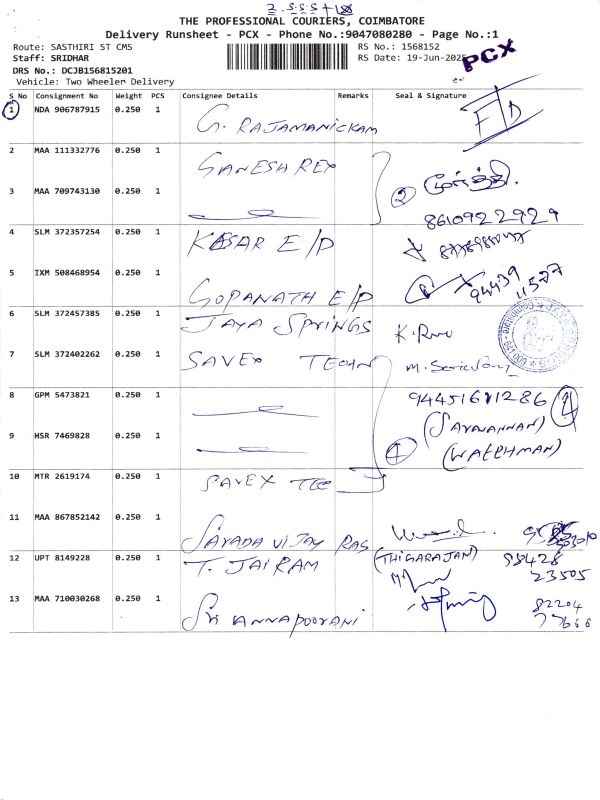 THE PROFESSIONAL COURIERS, COIMBATORE
Delivery Runsheet - PCX - Phone No.:9047080280 - Page No.:1
Route: SASTHIRI ST CMS RS No.: 1568152
Staff: SRIDHAR RS Date: 19-Jun-2025 PCX
DRS No.: DCJB156815201
Vehicle: Two Wheeler Delivery
S No Consignment No Weight PCS Consignee Details Remarks Seal & Signature
1 NDA 906787915 0.250 1 G. RAJAMANICKAM F/D
2 MAA 111332776 0.250 1 GANESH REX
3 MAA 709743130 0.250 1 2 மூர்த்தி.
8610922929
4 SLM 372357254 0.250 1 KESAR E/D
5 IXM 508468954 0.250 1 GOPANATH E/D 94439
11527
6 SLM 372457385 0.250 1 JAYA SPRINGS
7 SLM 372402262 0.250 1 SAVEX TECHN
8 GPM 5473821 0.250 1 4
9 HSR 7469828 0.250 1 4 (SARAVANNAN)
(WATCHMAN)
10 MTR 2619174 0.250 1 SAVEX TEC
11 MAA 867852142 0.250 1 SARADA VIJAY RAG
(THIGARAJAN)
12 UPT 8149228 0.250 1 T. JAIRAM 98428
23505
13 MAA 710030268 0.250 1 Sri ANNAPOORANI 82204
77666